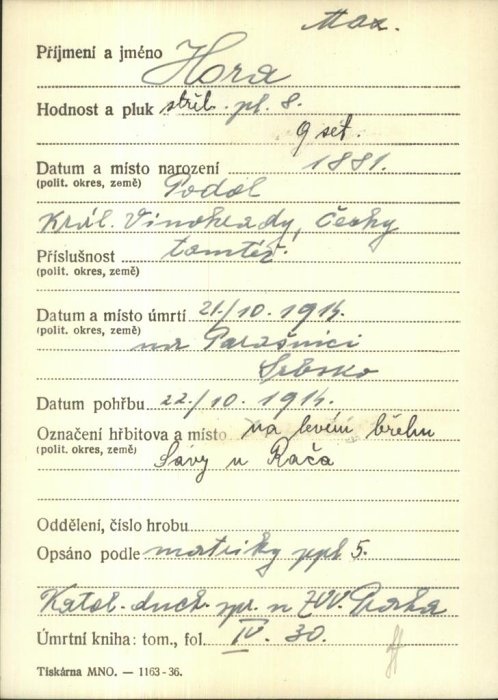 Max.
Příjmení a jméno Hora
Hodnost a pluk střel. pl. 8.
9 set.
Datum a místo narození 1881.
(polit. okres, země) Podol
Král. Vinohrady, Čechy
Příslušnost tamtéž
(polit. okres, země)
Datum a místo úmrtí 21./10. 1914.
(polit. okres, země) na Parašnici
Srbsko
Datum pohřbu 22./10. 1914.
Označení hřbitova a místo na levém břehu
(polit. okres, země) Savy u Rača
Oddělení, číslo hrobu
Opsáno podle matriky ppl. 5.
Katol. duch. spr. u ZVV. Praha
Úmrtní kniha: tom., fol. IV. 30.
Tiskárna MNO. — 1163-36.